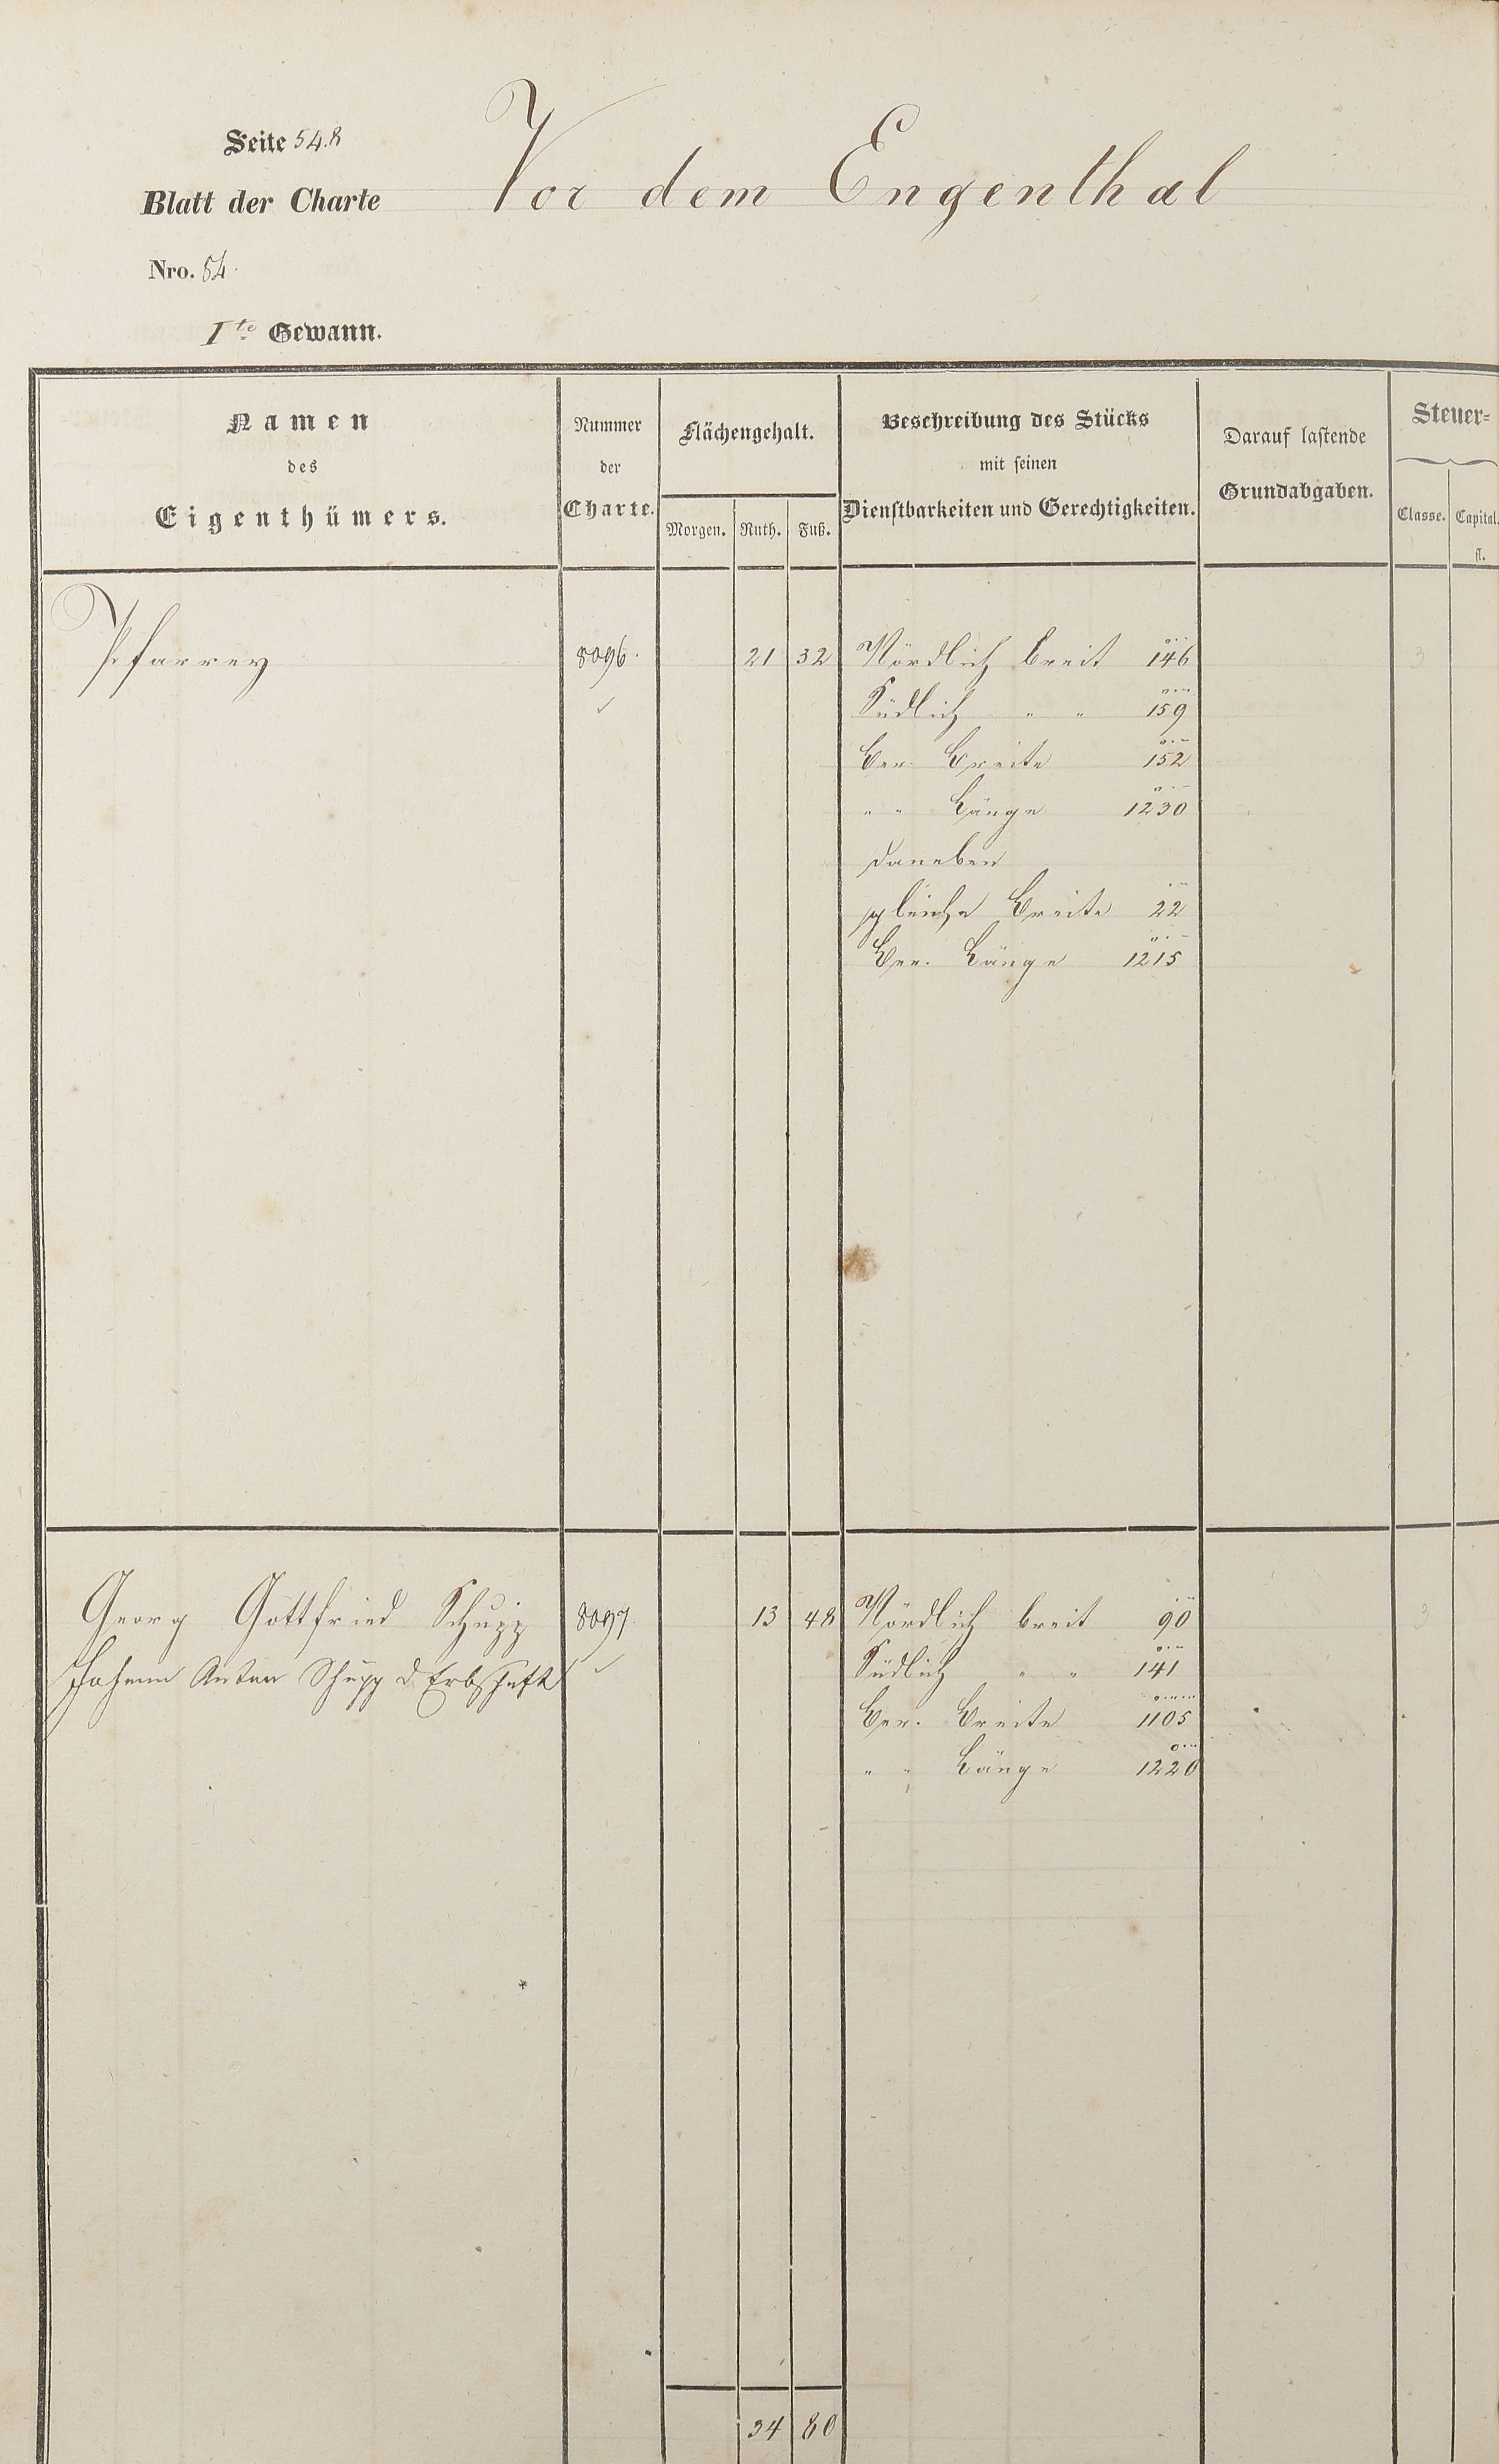 Seite 548
Vor dem Engenthal
Blatt der Charte
Nro. 54.
Ite Gewann.
Namen
des
Eigenthümers.
Nummer
der
Charte.
Flächengehalt.
Morgen. Ruth. Fuß.
Beschreibung des Stücks
mit seinen
Dienstbarkeiten und Gerechtigkeiten.
Darauf lastende
Grundabgaben.
Steuer=
Classe. Capital.
fl.
Pfarrey 8096. 21 32 Nördlich breit 146 3
Südlich " " 159
Ber. Breite 152
" " Länge 1230
Daneben
gleiche Breite 22
Ber. Länge 1215
Georg Gottfried Schupp 8097. 13 48 Nördlich breit 90 3
Johann Anton Schupp d Erbschaft Südlich " " 141
Ber. Breite 1105
" " Länge 1220
34 80